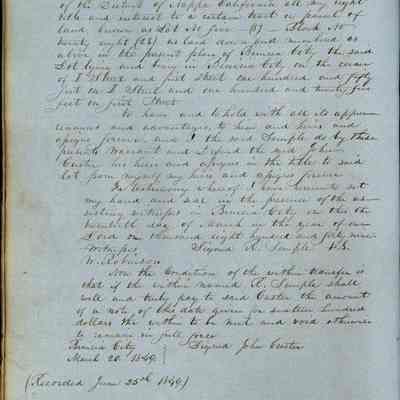 of the District of Nappa California all my right
title and interest to a certain tract or parcel of
land known as Lot No five (5) Block No
twenty eight (28) as laid down and numbered as
above in the present plan of Benicia City the said
Lot lying and being in Benicia City on the corner
of I Street and first Street one hundred and fifty
feet on I Street and one hundred and twenty five
feet on first Street
To have and to hold with all its appur-
tenances and advantages, to him and heirs and
assigns forever. And I the said Semple do by these
presents Warrant and Defend the said John
Custer his heirs and assigns in the title to said
Lot from myself my heirs and assigns forever
In testimony whereof I have hereunto set
my hand and seal in the presence of the as-
sisting witnesses in Benicia City on this the
twentieth day of March in the year of our
Lord one thousand eight hundred and forty nine
Witnesses Signed R. Semple
W. Robinson
Now the Condition of the within transfer is
that if the within named R. Semple shall
well and truly pay to said Custer the amount
of a note of this date given for sixteen hundred
dollars the within to be null and void otherwise
to remain in full force
Benicia City
March 20. 1849 Signed John Custer
(Recorded June 25th 1849)